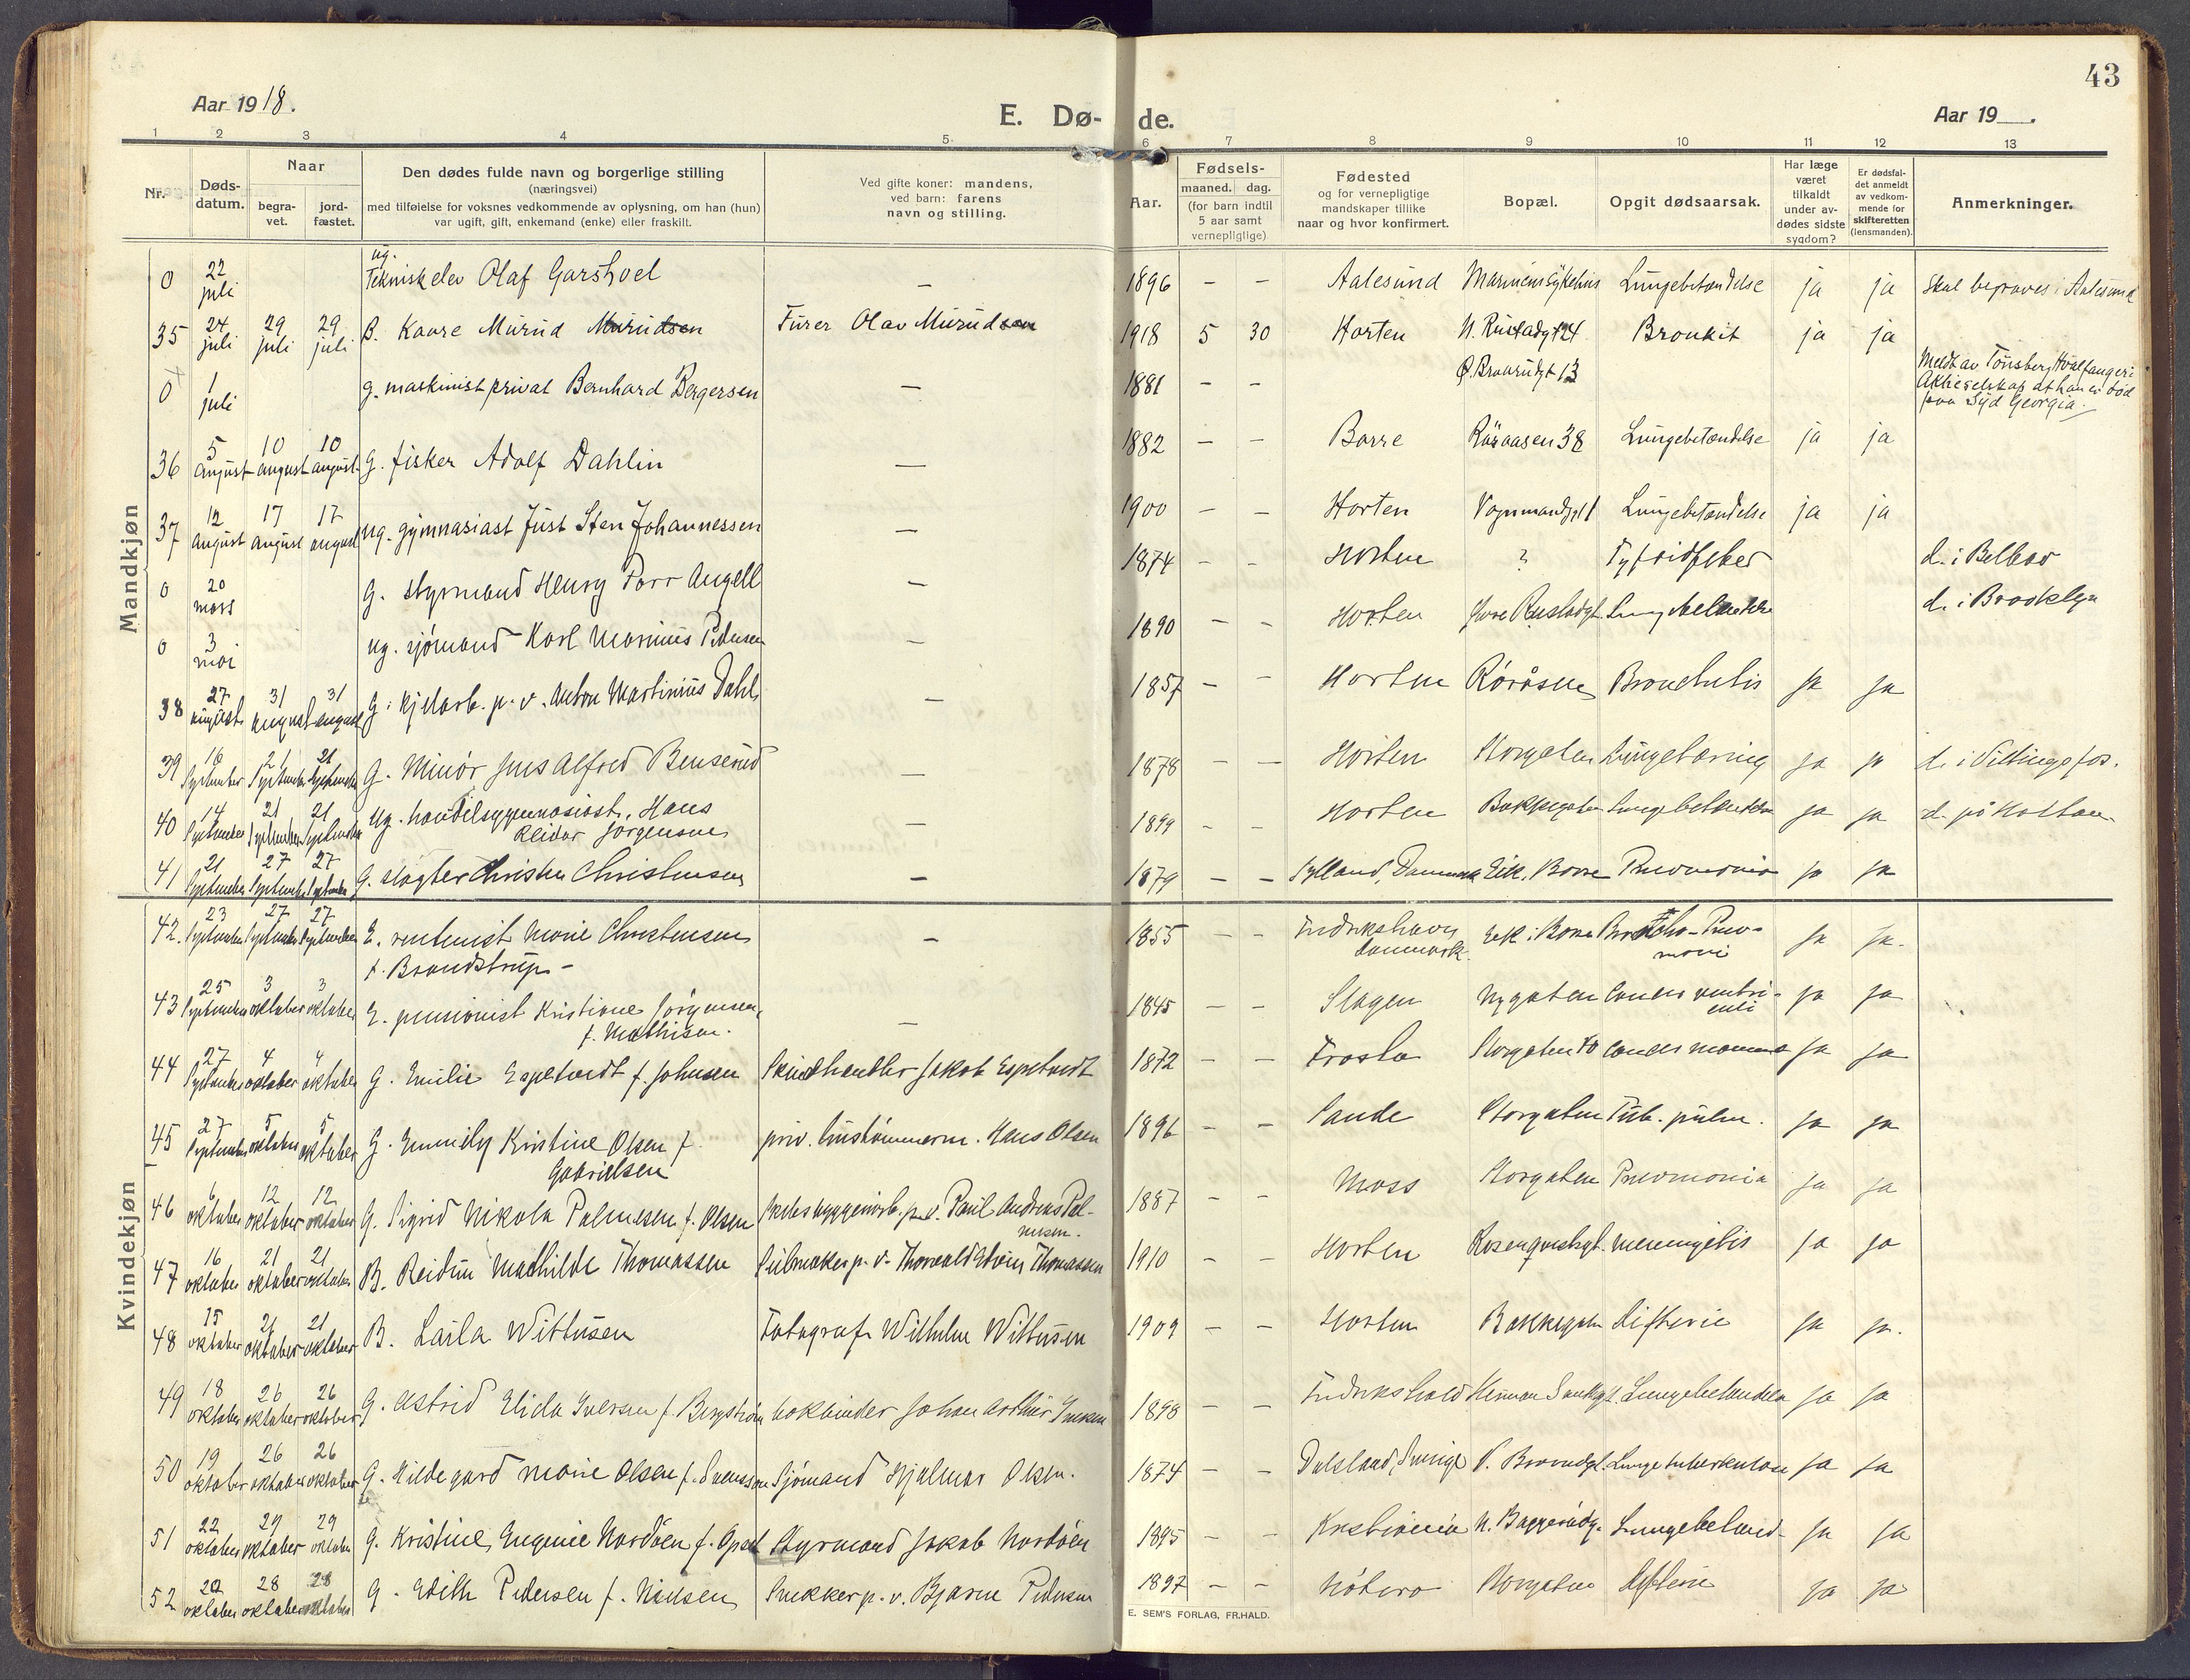 43
Aar 1918.
E. Dø- de.
Aar 19__.
1 2 3 4 5. 6 7 8 9 10 11 12 13
Nr.
Døds-
datum.
Naar
begra-
vet.
jord-
fæstet.
Den dødes fulde navn og borgerlige stilling
(næringsvei)
med tilføielse for voksnes vedkommende av oplysning, om han (hun)
var ugift, gift, enkemand (enke) eller fraskilt.
Ved gifte koner: mandens,
ved barn: farens
navn og stilling.
Aar.
Fødsels-
maaned. dag.
(for barn indtil
5 aar samt
vernepligtige)
Fødested
og for vernepligtige
mandskaper tillike
naar og hvor konfirmert.
Bopæl.
Opgit dødsaarsak.
Har læge
været
tilkaldt
under av-
dødes sidste
sygdom?
Er dødsfal-
det anmeldt
av vedkom-
mende for
skifteretten
(lensmanden).
Anmerkninger.
Mandkjøn
0 22 juli ug. Teknisk elev Olaf Garshoel — 1896 – – Aalesund Marinens Sykehus Lungebetændelse ja ja Skal begraves i Aalesund
35 24 juli 29 juli 29 juli B. Kaare Murud Murudsen Furer Olav Murudsen 1918 5 30 Horten N. Rustadgt 24 Bronkit ja ja
0 1 juli g. maskinist privat Bernhard Bergersen — 1881 – – Ø. Braarudgt 13 Meldt av Tønsberg Hvalfangeri Aktieselskap at han er død paa Syd Georgia
36 5 August 10 august 10 august G. fisker Adolf Dahlin — 1882 – – Borre Røraasen 38 Lungebetændelse ja ja
37 12 August 17 August 17 august ug. gymnasiast Just Sten Johannessen — 1900 – – Horten Vognmandsgt 1 Lungebetændelse ja ja
0 20 mars G. styrmand Henry Parr Angell — 1874 – – Horten ? Tyfoidfeber d. i Belbao
0 3 mai ug. sjømand Karl Marinius Pedersen — 1890 – – Horten Rustadgt. Lungebetændelse d. i Brooklyn
38 27 august 31 august 31 august G. kjelarb. p. v. Anton Martinius Dahl — 1857 – – Horten Røråsen Bronchitis ja ja
39 16 September 21 September 21 September G. Minør Jens Alfred Benserud — 1878 – – Horten Storgaten Lungetæring ja ja d. i Vittingfos.
40 14 September 21 September 21 September Ug. handelsgymnasiast, Hans Reidar Jørgensen — 1899 – – Horten Bakkegaten Lungebetændelse ja ja d. på Holtan
41 21 September 27 September 27 September G. slagter Christen Christensen — 1879 – – Jylland, Danmark Eik, Borre Pneumonia ja ja
Kvindekjøn
42. 23 September 27 September 27 September E. rentenist Marie Christensen f. Brandstrup – — 1855 – – Fredrikshavn Danmark. Eik i Borre Broncho-Pneumoni ja ja.
43 25 September 3 oktober 3 oktober E. pensionist Kristiane Jørgensen, f. Mathisen. — 1845 – – Slagen Nygaten Cancer ventriculi ja ja
44 27 September 4 oktober 4 oktober G. Emilie Espetvedt f. Johnsen Skindhandler Jakob Espetvedt 1872 – – Frosta Storgaten 70 Cancer mamma ja ja
45 27 September 5 oktober 5 oktober G. Emmily Kristine Olsen f. Gabrielsen priv. hustømmerm. Hans Olsen 1896 – – Sande Storgaten Tub. pulm. ja ja
46 6 oktober 12 oktober 12 oktober G. Sigrid Nikola Palmesen f. Olsen Skibsbyggerarb. p. v. Paul Andreas Palmesen. 1887 – – Moss Storgaten Pneumonia ja ja
47 16 oktober 21 oktober 21 oktober B. Reidun Mathilde Thomassen Seilmaker p. v. Thorvald Edvin Thomassen 1910 – – Horten Rosenqvistgt. meningitis ja ja
48 15 oktober 21 oktober 21 oktober B. Laila Wittusen Fotograf Wilhelm Wittusen 1909 – – Horten Bakkegaten Difterie ja ja.
49 18 oktober 26 oktober 26 oktober G. Astrid Elida Iversen f. Bergstrøm bokbinder Johan Arthur Iversen 1898 – – Fredrikshald Lungebetændelse ja ja
50 19 oktober 26 oktober 26 oktober G. Hildegard Marie Olsen f. Svensson Sjømand Hjalmar Olsen. 1874 – – Dalsland, Sverige V. Braarudgt. Lungetuberkulose ja ja
51 22 oktober 29 oktober 29 oktober G. Kristine, Eugenie Nordøen f. Styrmand Jakob Nordøen 1895 – – Kristiania N. Baggerødg. Lungebetænd. ja ja
52 22 oktober 28 oktober 28 oktober G. Edith Pedersen f. Nielsen Snekker p. v. Bjarne Pedersen 1897 – – Nøtterø Storgaten Difterie ja ja
E. SEM'S FORLAG, FR.HALD.